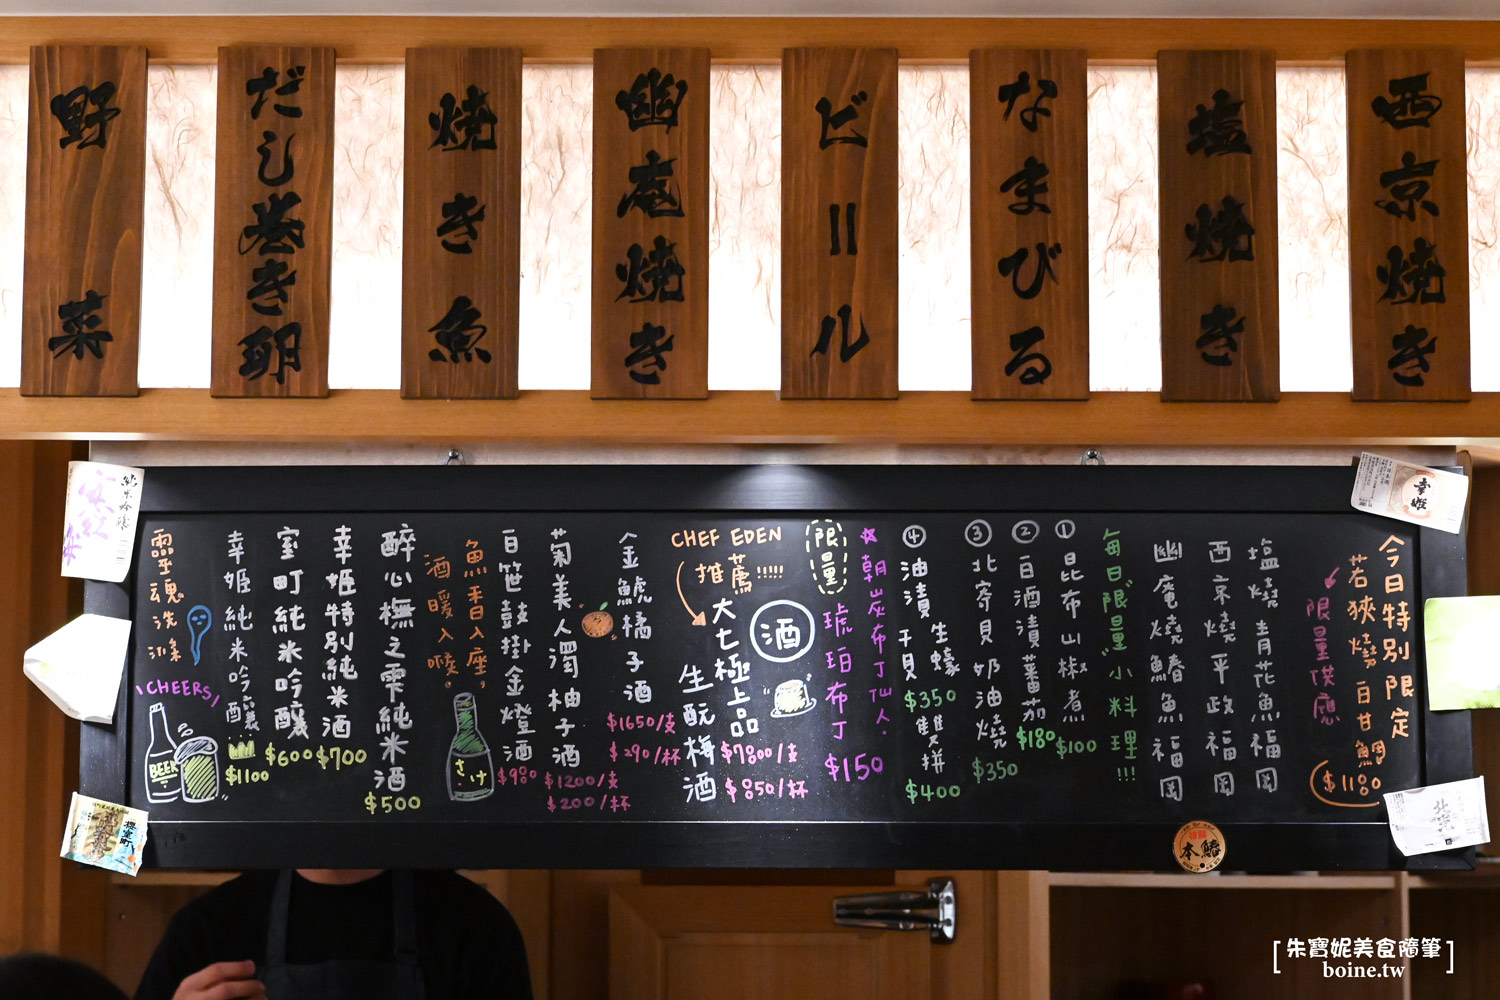 西京焼き
塩焼き
なまびる
ビール
幽庵焼き
焼き魚
だし巻き卵
野菜
今日特別限定
若狹燒 白甘鯛
$1180
限量供應
塩燒 青花魚 福岡
西京燒 平政 福岡
幽庵燒 鰆魚 福岡
每日"限量"小料理!!!
① 昆布山椒煮
$100
② 白酒漬蕃茄
$180
③ 北寄貝奶油燒
$350
④ 油漬 生蠔 $350
干貝 雙拼
$400
朝炭布丁仙人.
限量 琥珀布丁
$150
CHEF EDEN
推薦!!!!!
酒
大七極上品
生酛梅酒
$7800/支
$850/杯
金鯱橘子酒
$1650/支
$290/杯
菊美人濁柚子酒
$1200/支
$200/杯
百笹鼓掛金燈酒
$980
魚香入座,
酒暖入喉。
さけ
醉心橅之雫純米酒
$500
幸姬特別純米酒
$700
室町純米吟釀
$600
幸姬純米吟釀
$1100
靈魂洗滌
\CHEERS/
BEER
幸姬
本鰆
[朱寶妮美食隨筆]
boine.tw